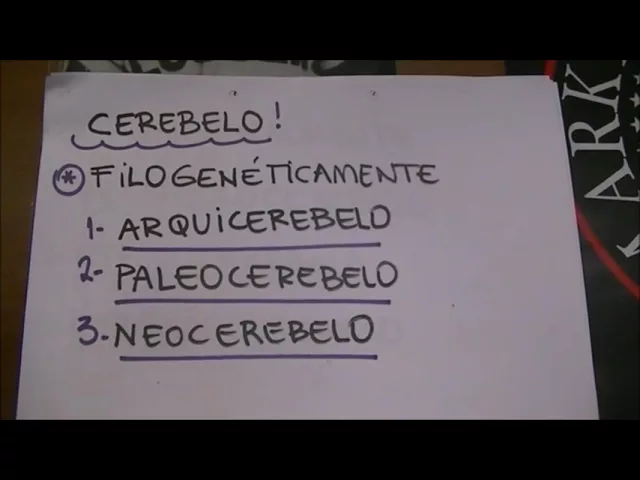 CEREBELO!
* FiLOGENÉTiCAMENTE
1- ARQUiCEREBELO
2- PALEOCEREBELO
3.- NEOCEREBELO
ARK